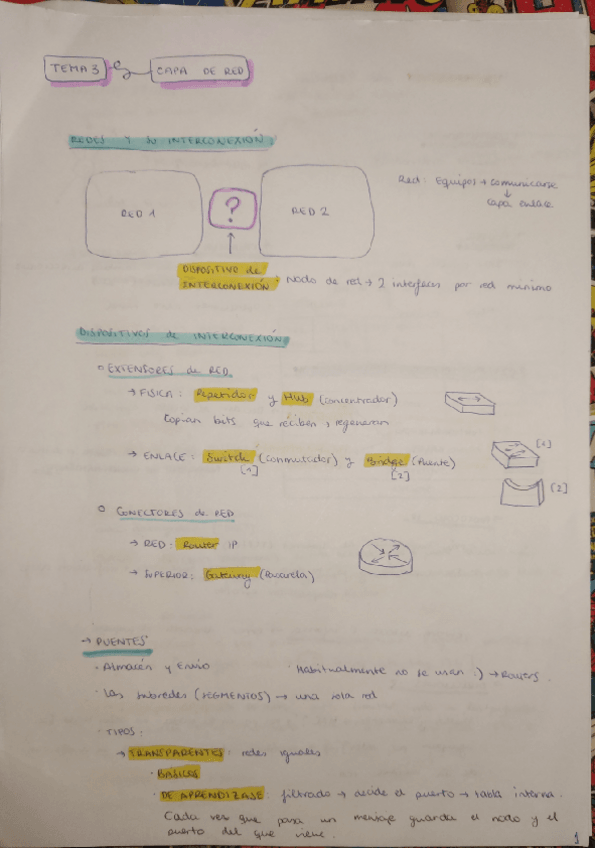 TEMA 3 CAPA DE RED
REDES Y SU INTERCONEXIÓN:
RED 1 ? RED 2
Red: Equipos → comunicarse
↓
capa enlace
DISPOSITIVO de INTERCONEXIÓN: Nodo de red → 2 interfaces por red mínimo
DISPOSITIVOS de INTERCONEXIÓN
EXTENSORES de RED
→ FISICA: Repetidor y Hub (concentrador)
Copian bits que reciben y regeneran
→ ENLACE: Switch (conmutador) y Bridge (Puente)
[1] [2]
[1]
[2]
CONECTORES de RED
→ RED: Router IP
→ SUPERIOR: Gateway (Pasarela)
→ PUENTES
· Almacén y Envío
· Habitualmente no se usan :) → Routers.
· Las subredes (SEGMENTOS) → una sola red
· TIPOS:
→ TRANSPARENTES: redes iguales
· BÁSICOS
· DE APRENDIZAJE: filtrado → decide el puerto → tabla interna.
Cada vez que pasa un mensaje guarda el nodo y el
puerto del que viene.
1